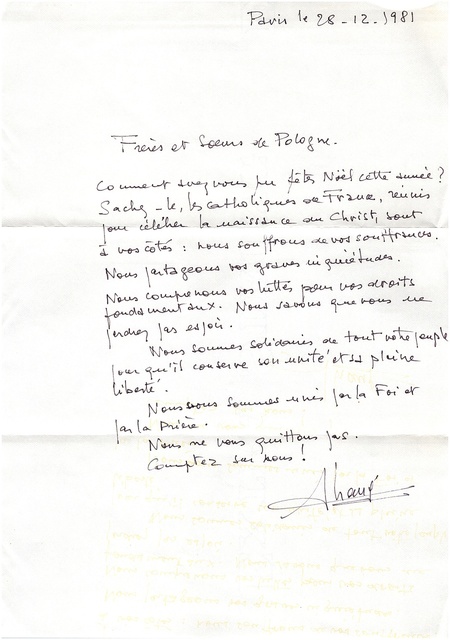 Paris le 28-12.1981
Frères et Soeurs de Pologne.
Comment avez vous pu fêter Noël cette année ?
Sachez-le, les catholiques de France, réunis
pour célébrer la naissance du Christ, sont
à vos côtés : nous souffrons de vos souffrances.
Nous partageons vos graves inquiétudes.
Nous comprenons vos luttes pour vos droits
fondamentaux. Nous savons que vous ne
perdrez pas espoir.
Nous sommes solidaires de tout votre peuple
pour qu'il conserve son unité et sa pleine
liberté.
Nous vous sommes unis par la Foi et
par la Prière.
Nous ne vous quittons pas.
Comptez sur nous !